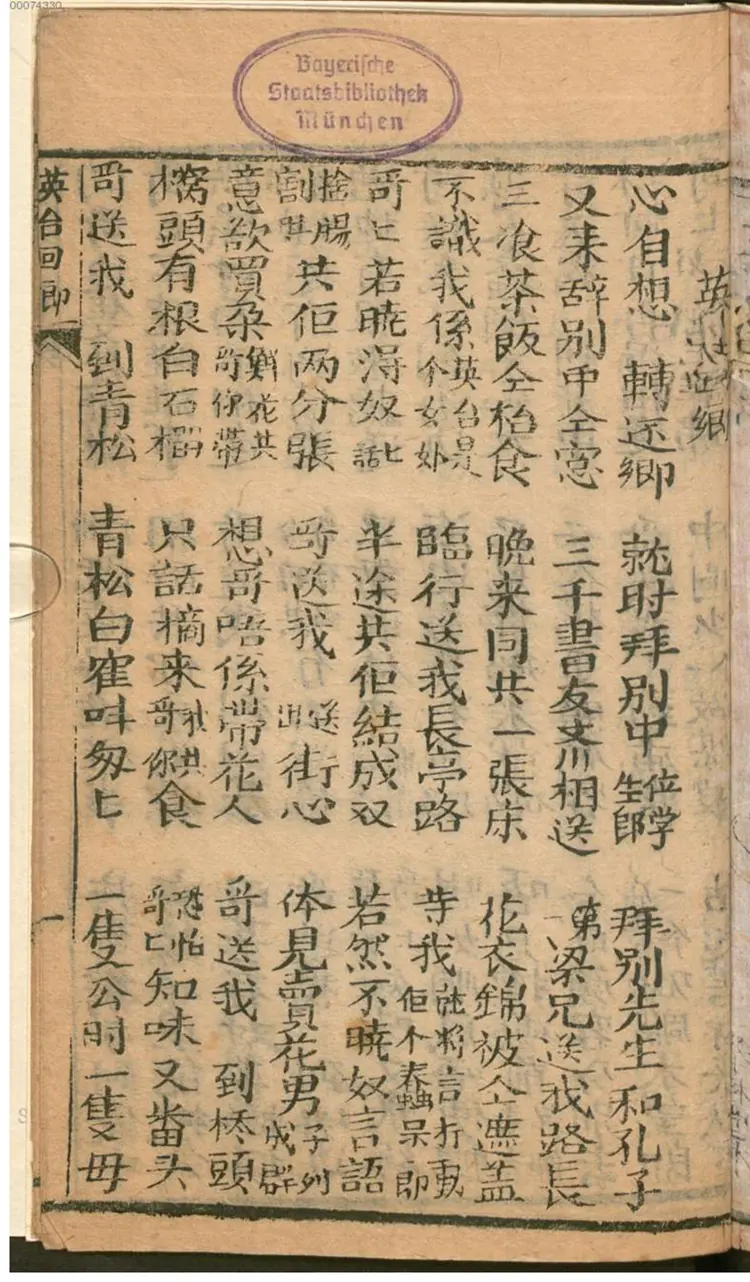 00074330
Bayerische
Staatsbibliothek
München
英 鄉
心自想 轉还鄉 就时拜别中位学生郎 拜别先生和孔子
又来辞别中仝窓 三千書友 相送 第一梁兄送我路長
三飡茶飯仝枱食 晚来同共一張床 花衣錦被仝遮盖
不識我係英台是个女 臨行送我長亭路 等我就将言打動佢个蠢呆郎
哥匕若曉淂奴匕話 半途共佢結成双 若然不曉奴言語
捨腸割 共佢两分張 哥送我 街心 体見賣花男子列成群
意欲買朶鮮花共哥你帶 想哥唔係帶花人 哥送我 到桥頭
頭有根白石榴 只話摘来我共哥你食 恐怕哥匕知味又番头
哥送我 到青松 青松白寉呌匆匕 一隻公时一隻毋
英台回郎